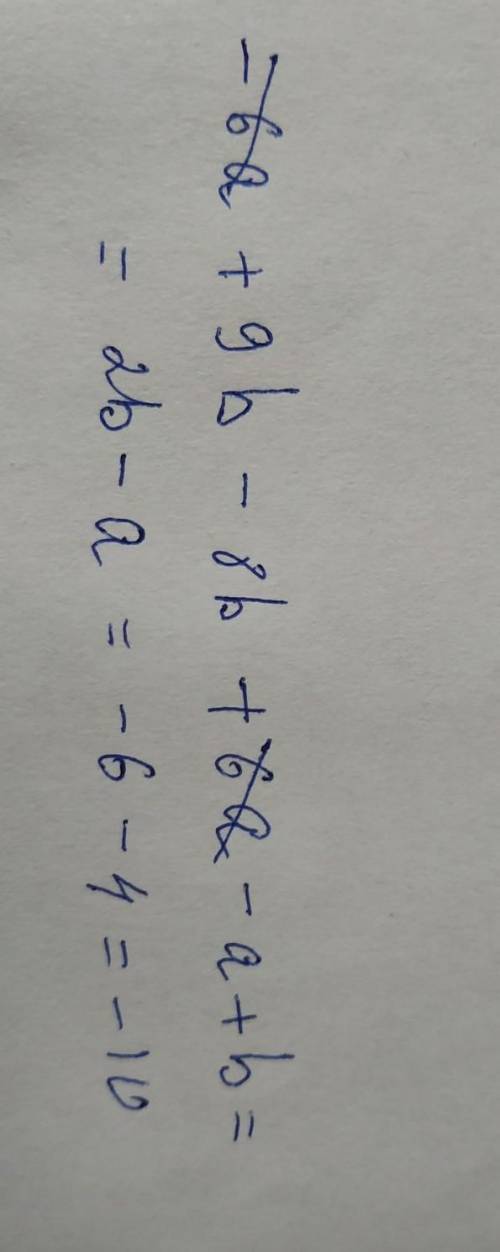 -6a + 9b - 8b + 6a - a + b =
= 2b - a = -6 - 4 = -10